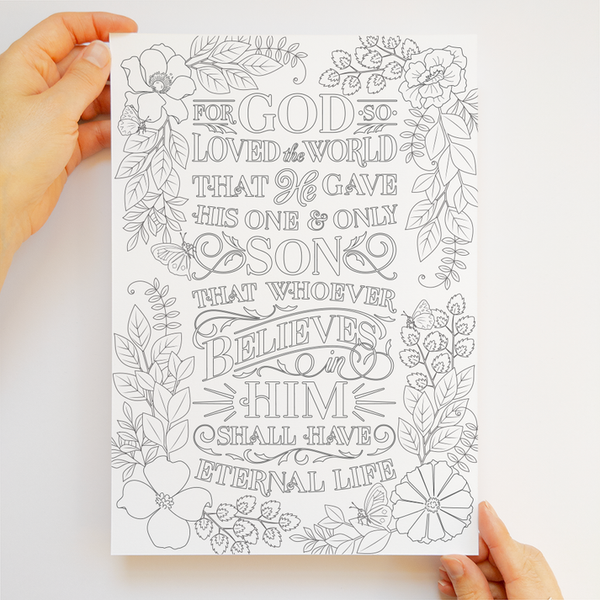 FOR GOD ·SO·
LOVED the WORLD
THAT He GAVE
·HIS ONE & ONLY
SON
THAT WHOEVER
BELIEVES
in
·HIM·
SHALL HAVE
ETERNAL LIFE